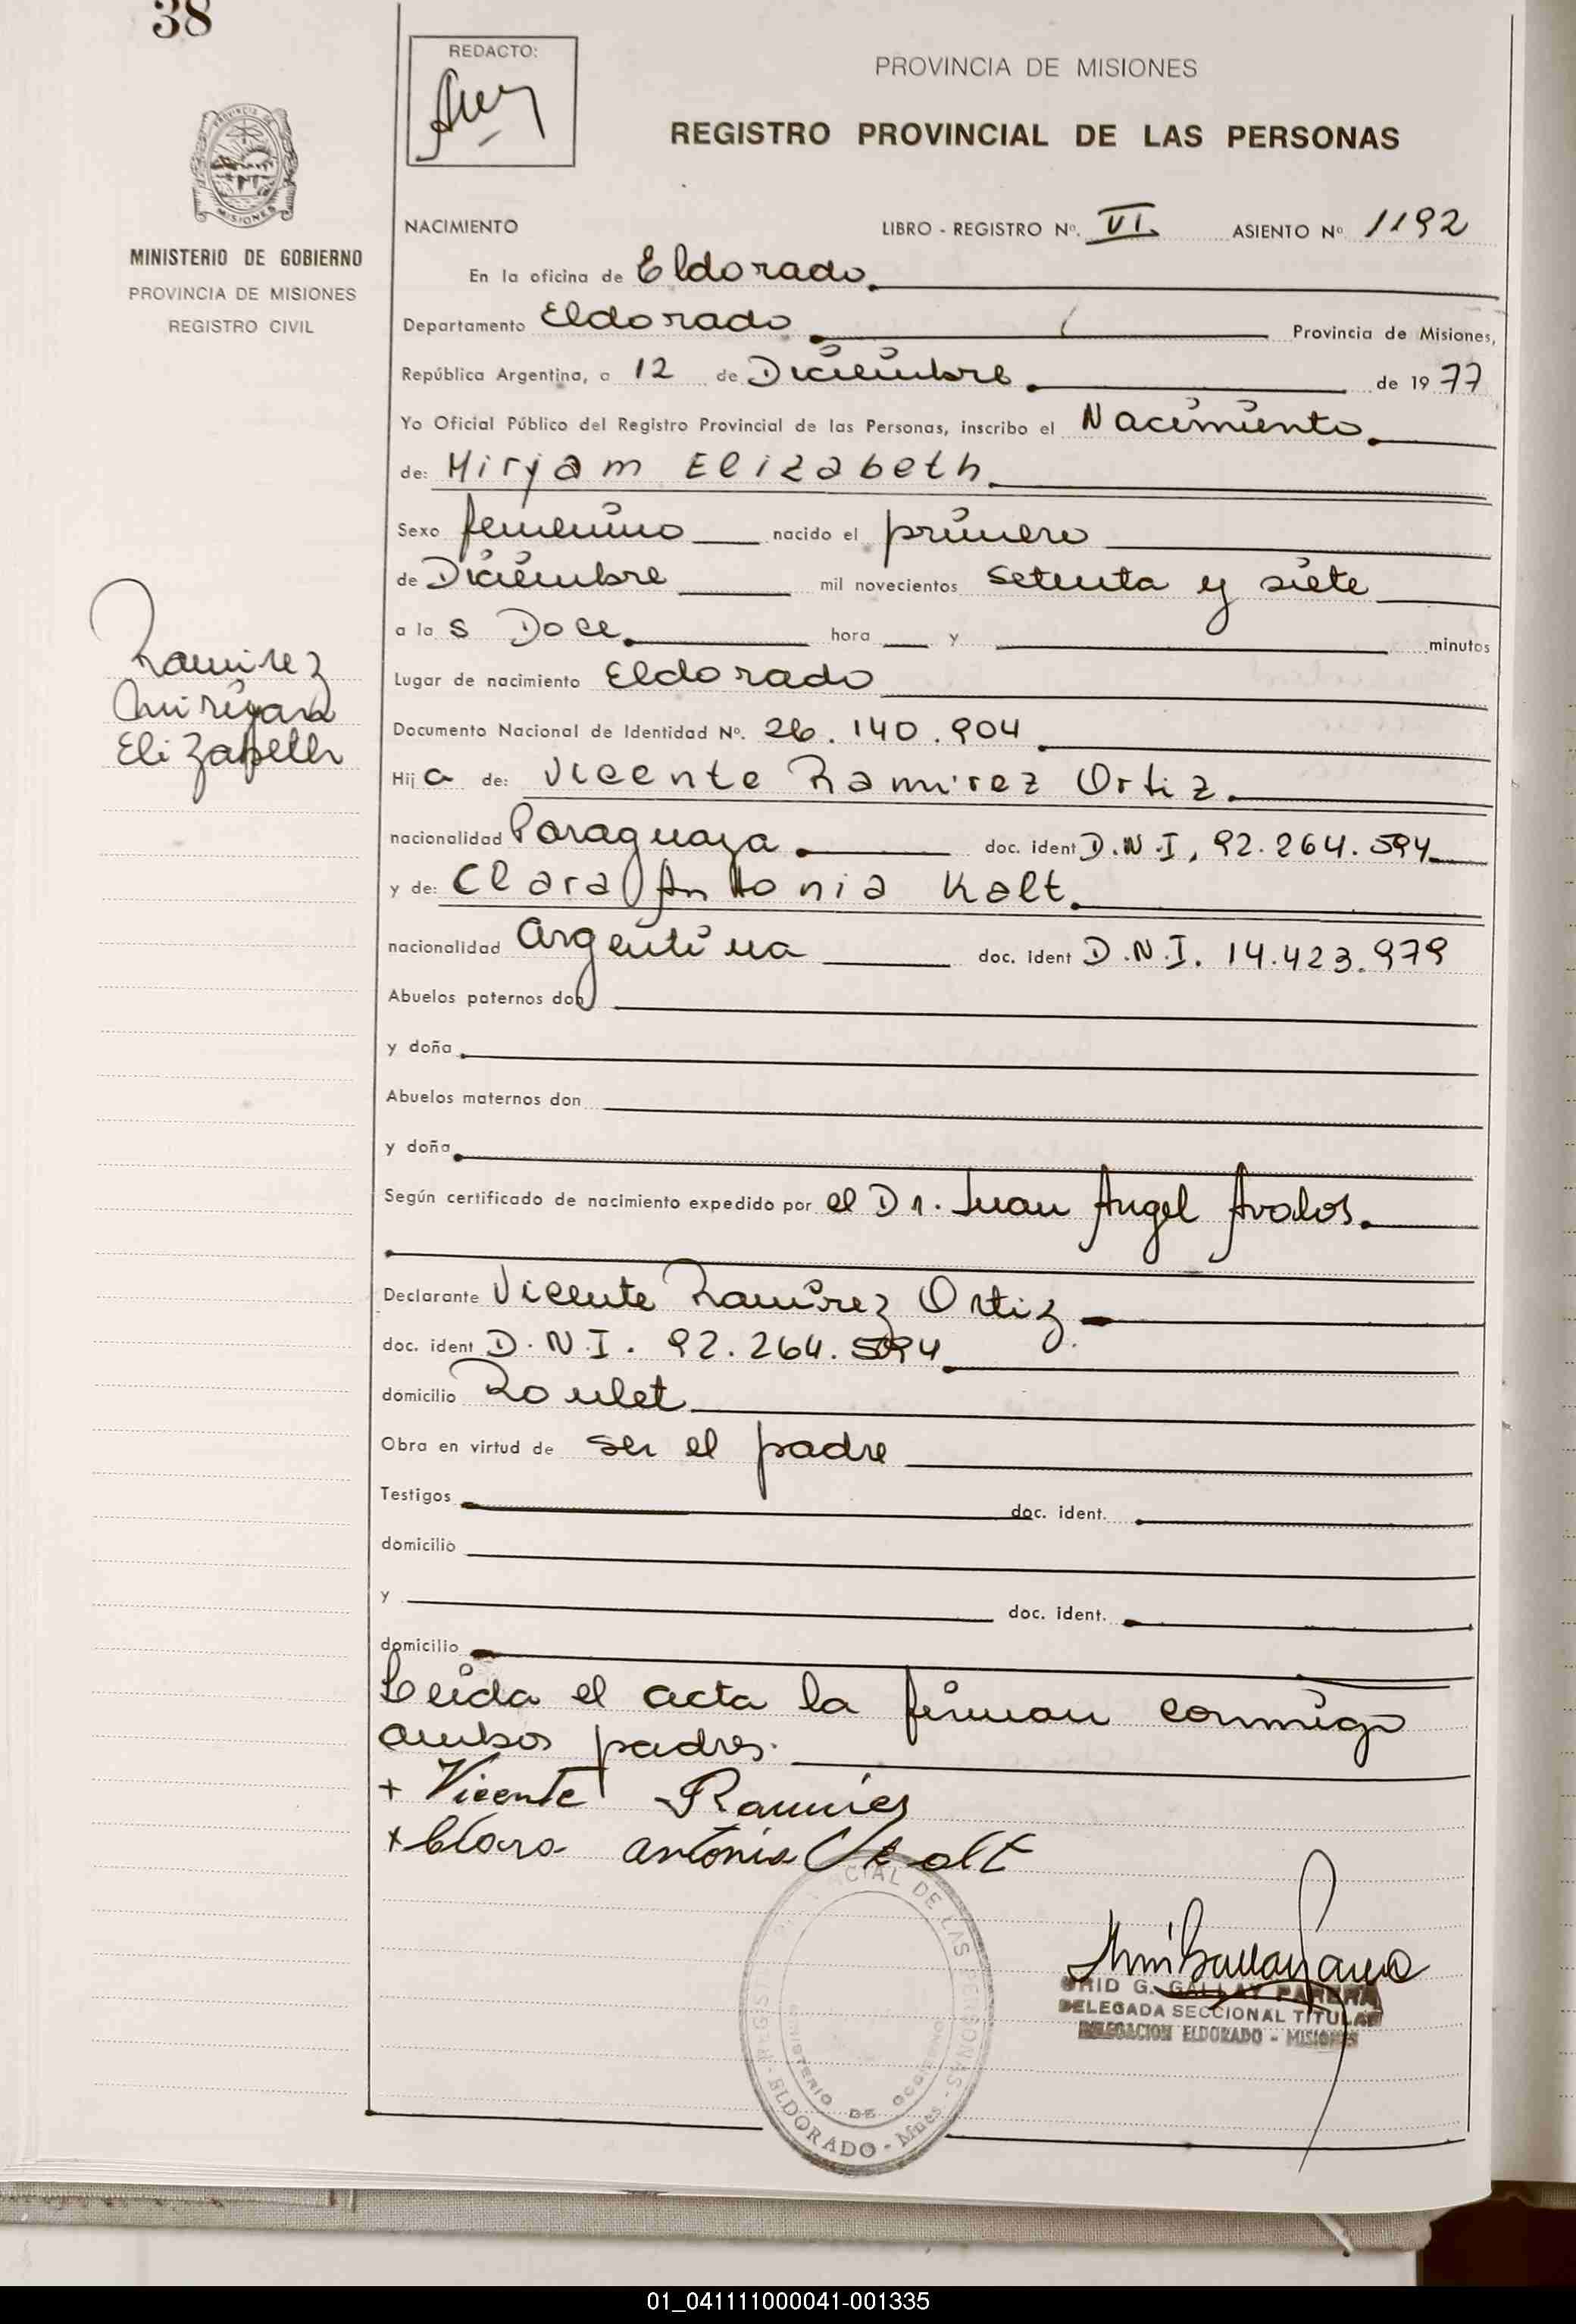 38
REDACTO:
PROVINCIA DE MISIONES
REGISTRO PROVINCIAL DE LAS PERSONAS
MINISTERIO DE GOBIERNO
PROVINCIA DE MISIONES
REGISTRO CIVIL
NACIMIENTO LIBRO - REGISTRO Nº. VI. ASIENTO Nº 1192
En la oficina de Eldorado
Departamento Eldorado Provincia de Misiones,
República Argentina, a 12 de Diciembre de 1977
Yo Oficial Público del Registro Provincial de las Personas, inscribo el Nacimiento
de: Mirjam Elizabeth
Sexo femenino nacido el primero
de Diciembre mil novecientos setenta y siete
a las Doce hora y minutos
Ramirez
Elizabeth
Lugar de nacimiento Eldorado
Documento Nacional de Identidad Nº. 26.140.904
Hija de: Vicente Ramirez Ortiz
nacionalidad Paraguaya doc. ident D.N.I, 92.264.594
y de: Clara Antonia Kalt
nacionalidad argentina doc. ident D.N.I. 14.423.979
Abuelos paternos don
y doña
Abuelos maternos don
y doña
Según certificado de nacimiento expedido por el Dr. Juan Angel Avalos.
Declarante Vicente Ramirez Ortiz
doc. ident D.N.I. 92.264.594
domicilio Roulet
Obra en virtud de ser el padre
Testigos doc. ident.
domicilio
y doc. ident.
domicilio
Leida el acta la firman conmigo
ambos padres.
+ Vicente Ramires
+ Clara antonia Kalt
REGISTRO PROVINCIAL DE LAS PERSONAS -
MINISTERIO DE GOBIERNO
ELDORADO - Mnes -
G. GALLAY PARERA
DELEGADA SECCIONAL TITULAR
DELEGACION ELDORADO - MISIONES
01_041111000041-001335